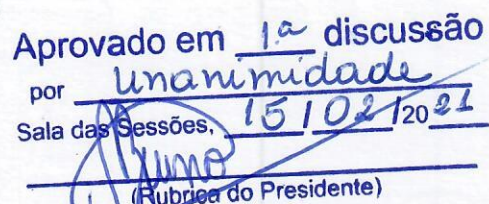 Aprovado em 1ª discussão
por unanimidade
Sala das Sessões, 15 / 02 / 20 21
(Rubrica do Presidente)